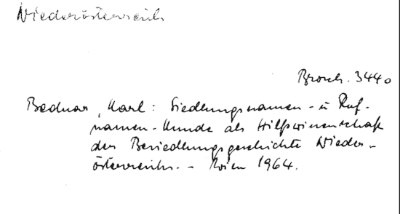 Niederösterreich
Brosch. 3440
Bednar, Karl: Siedlungsnamen- u Ruf-
namen-Kunde als Hilfswissenschaft
der Besiedlungsgeschichte Nieder-
österreichs. - Wien 1964.